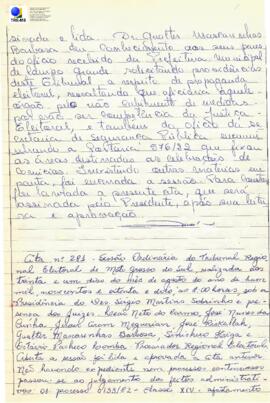 sinada e lida. Dr. Gualter Mascarenhas
Barbosa deu conhecimento aos seus pares
do ofício recebido da Prefeitura Municipal
de Campo Grande solicitando providências
deste Tribunal, a respeito de propaganda
eleitoral, ressaltando que oficiaria aquele
órgão, pelo não cumprimento de medidas
por não ser competência da Justiça
Eleitoral, e também do ofício da Se-
cretaria de Segurança Pública encami-
nhando a Portaria 076/82 que fixou
as áreas destinadas as celebração de
comícios. Inexistindo outras matérias em
pauta, foi encerrada a sessão. Para constar
foi lavrada a presente ata, que será
assinada pelo Presidente, após sua leitu-
ra e aprovação.
Ata nº 283 - Sessão Ordinária do Tribunal Regio-
nal Eleitoral de Mato Grosso do Sul, realizada aos
trinta e um dias do mês de agosto do ano de hum mil,
novecentos e oitenta e dois às 8:00 horas, sob a
Presidência do Des. Sérgio Martins Sobrinho e presen-
ça dos Juízes: Leão Neto do Carmo, José Nunes da
Cunha, Jesus Cenn, José Paskallak,
Gualter Mascarenhas Barbosa, Higa e
Otávio Pacheco Lomba Procurador Regional Eleitoral.
Aberta a sessão foi lida e aprovada a ata anterior.
Não havendo expediente nem processo contencioso
passou-se ao julgamento dos feitos administrati-
vos: os processo 0133/82 - classe XIV - afastamento